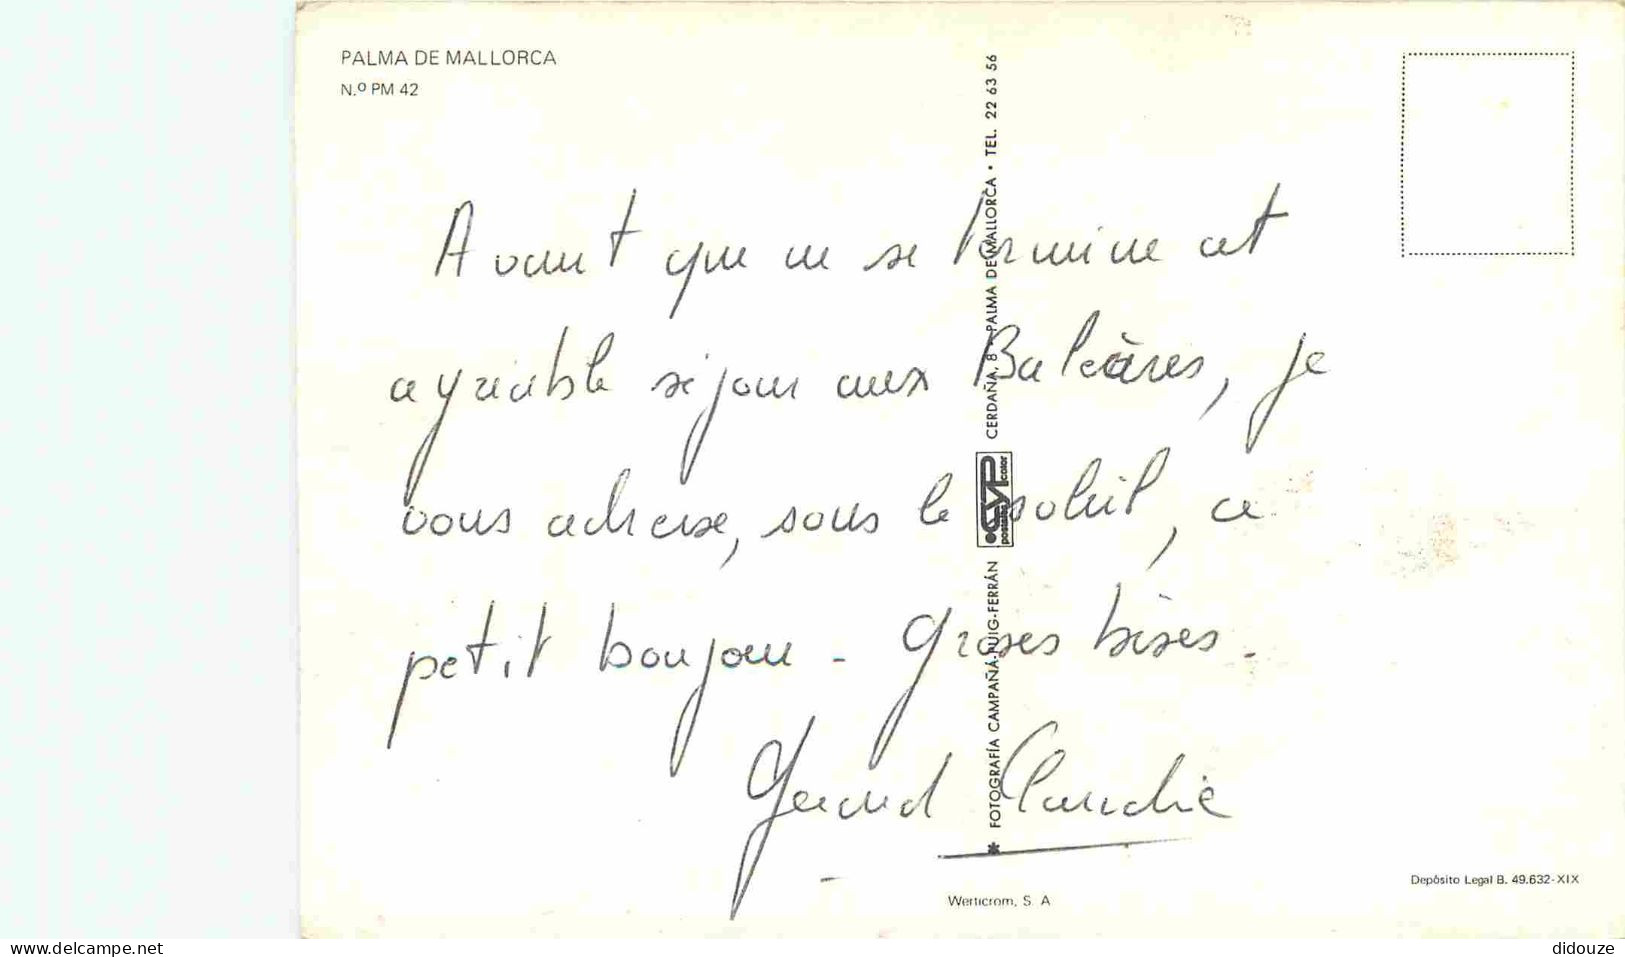 PALMA DE MALLORCA
N.º PM 42
Avant que ne se termine cet
agréable séjour aux Baléares, je
vous adresse, sous le soleil, ce
petit bonjour - Grosses bises -
Gérard Claudie
✱ FOTOGRAFÍA CAMPAÑÁ-PUIG-FERRÁN
CYP
postales color
CERDAÑA, 8 - PALMA DE MALLORCA • TEL. 22 63 56
Werticrom, S. A
Depósito Legal B. 49.632-XIX
www.delcampe.net
didouze